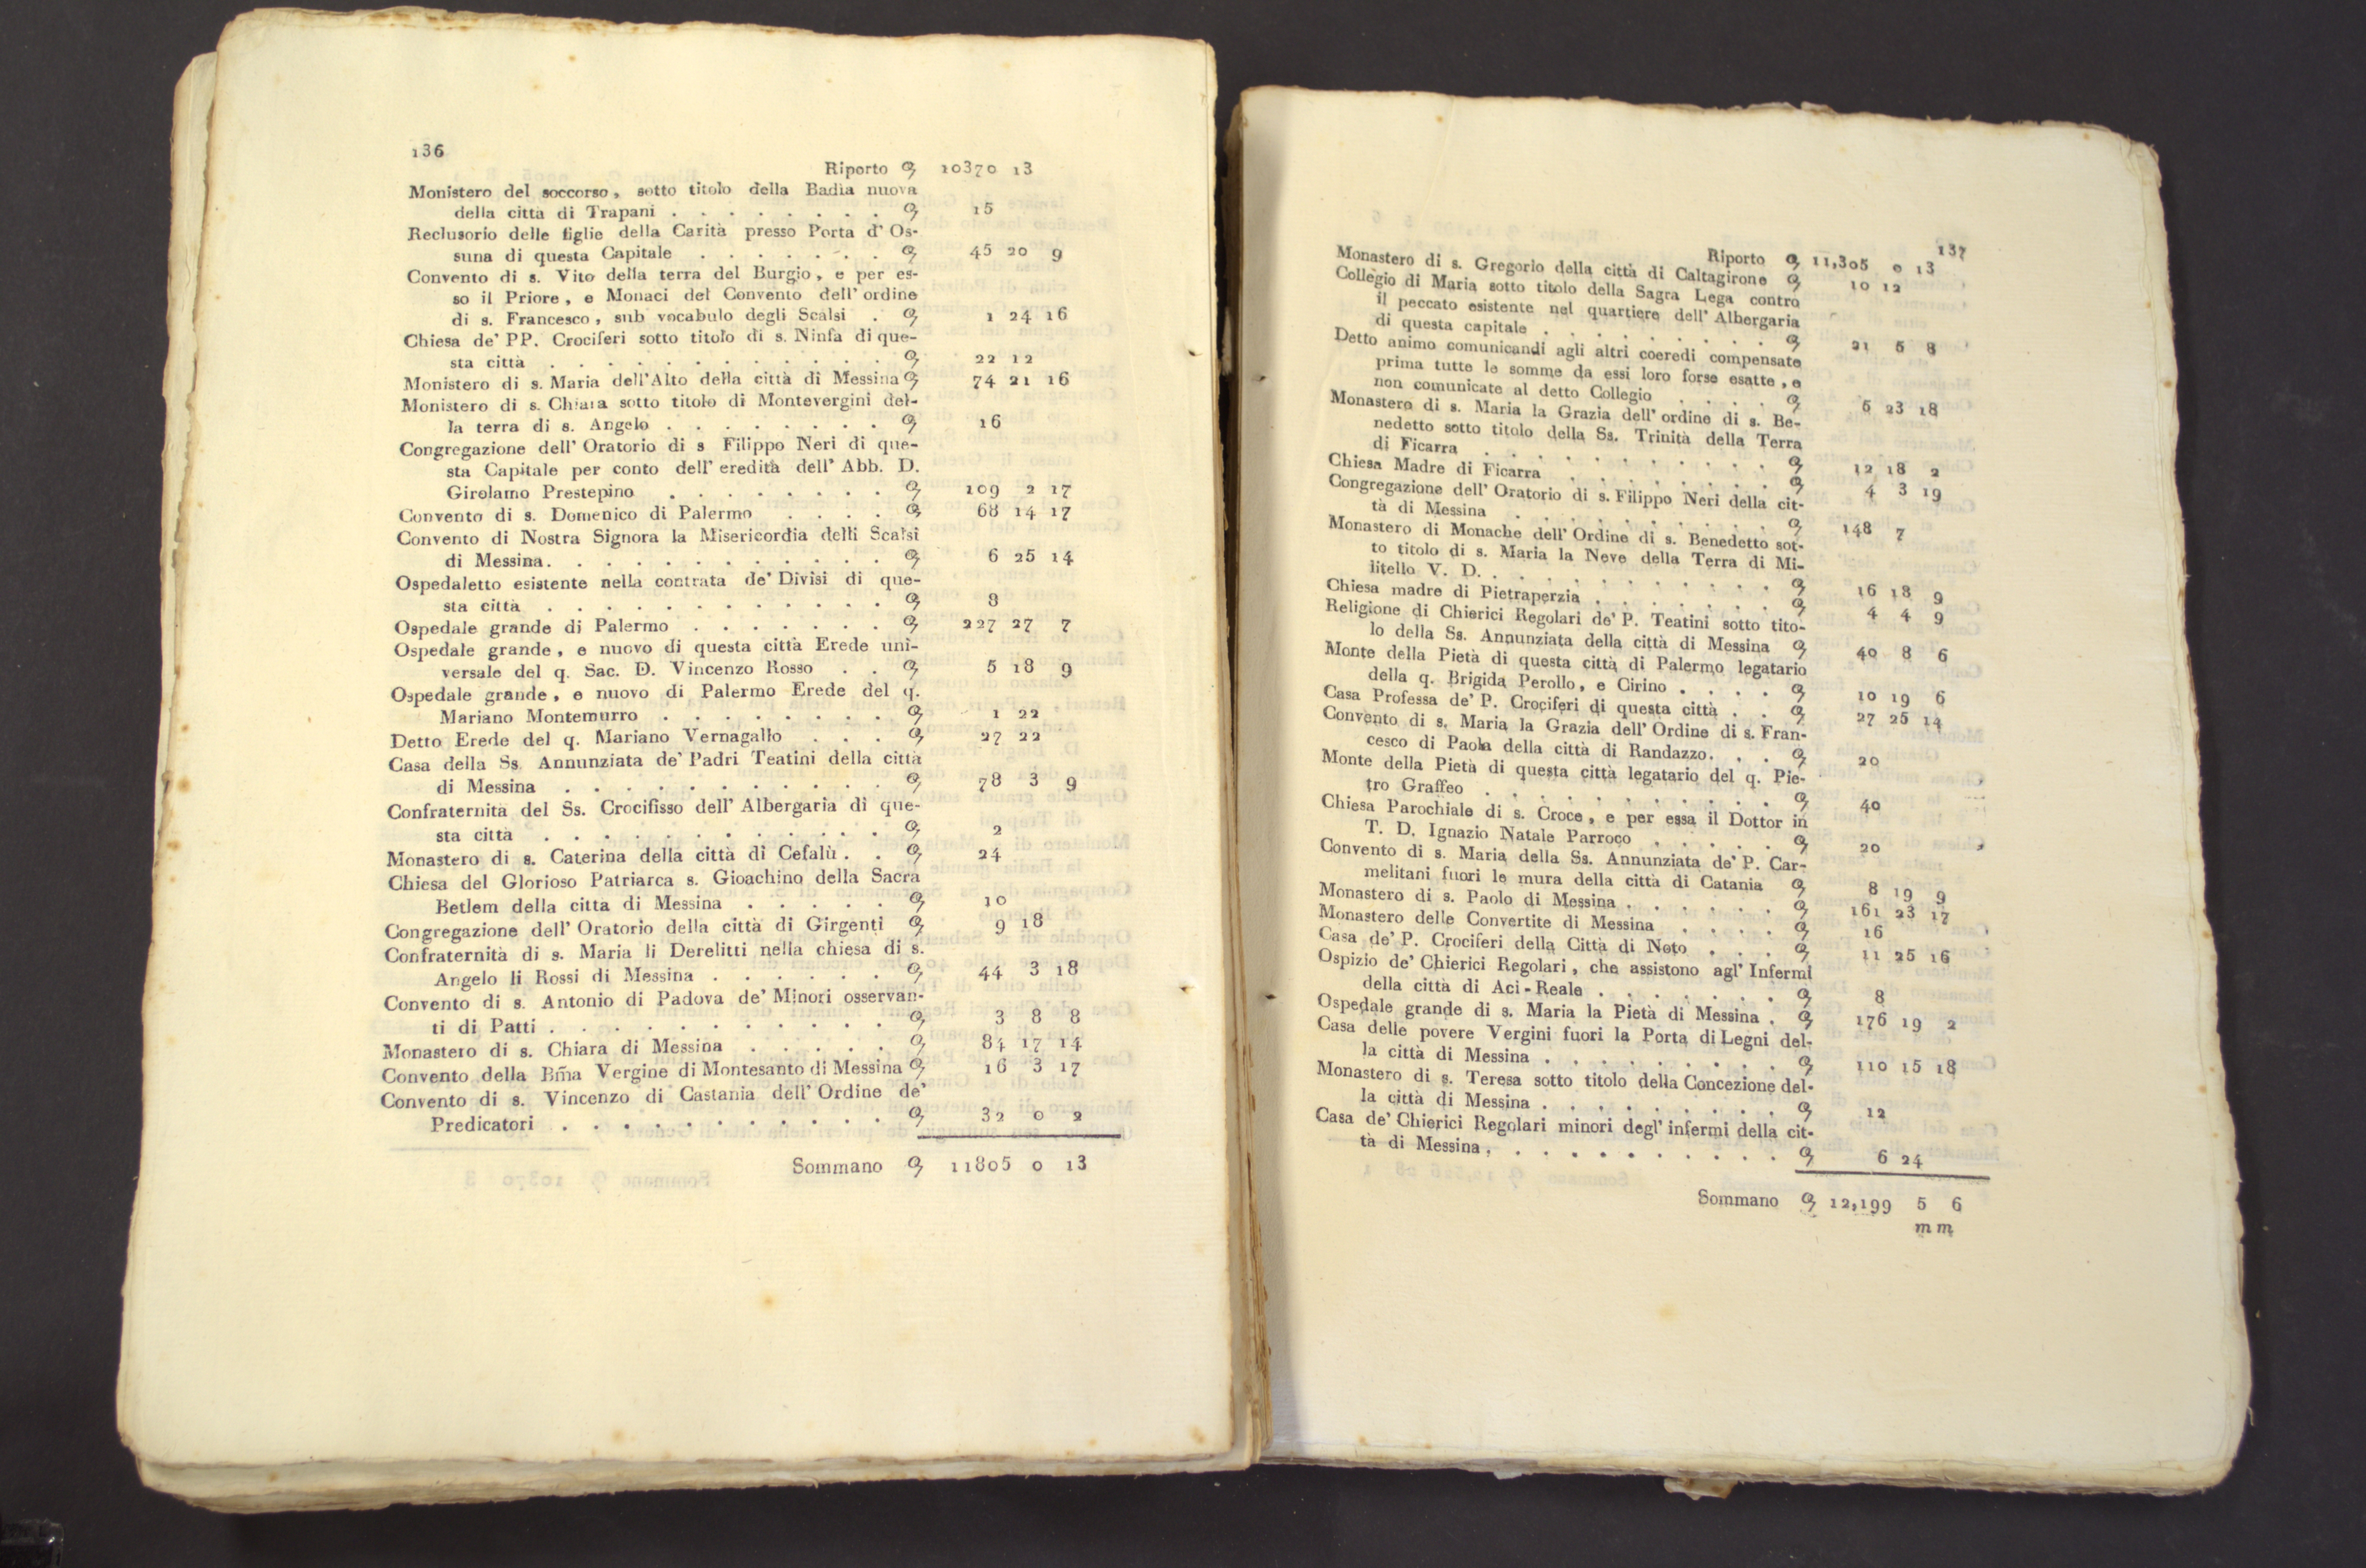 136
Riporto 10370 13
Monistero del soccorso, sotto titolo della Badia nuova
della città di Trapani . . . . . . . . 15
Reclusorio delle figlie della Carità presso Porta d' Os-
suna di questa Capitale . . . . . . . 45 20 9
Convento di s. Vito della terra del Burgio, e per es-
so il Priore, e Monaci del Convento dell' ordine
di s. Francesco, sub vocabulo degli Scalsi . 1 24 16
Chiesa de' PP. Crociferi sotto titolo di s. Ninfa di que-
sta città . . . . . . . . . . . . 22 12
Monistero di s. Maria dell'Alto della città di Messina 74 21 16
Monistero di s. Chiara sotto titolo di Montevergini del-
la terra di s. Angelo . . . . . . . . 16
Congregazione dell' Oratorio di s Filippo Neri di que-
sta Capitale per conto dell' eredità dell' Abb. D.
Girolamo Prestepino . . . . . . . . 109 2 17
Convento di s. Domenico di Palermo . . . . 68 14 17
Convento di Nostra Signora la Misericordia delli Scalsi
di Messina. . . . . . . . . . . . 6 25 14
Ospedaletto esistente nella contrata de' Divisi di que-
sta città . . . . . . . . . . . . 8
Ospedale grande di Palermo . . . . . . . 227 27 7
Ospedale grande, e nuovo di questa città Erede uni-
versale del q. Sac. D. Vincenzo Rosso . . 5 18 9
Ospedale grande, e nuovo di Palermo Erede del q.
Mariano Montemurro . . . . . . . . 1 22
Detto Erede del q. Mariano Vernagallo . . . 27 22
Casa della Ss. Annunziata de' Padri Teatini della città
di Messina . . . . . . . . . . . 78 3 9
Confraternità del Ss. Crocifisso dell' Albergaria di que-
sta città . . . . . . . . . . . . 2
Monastero di s. Caterina della città di Cefalù . . 24
Chiesa del Glorioso Patriarca s. Gioachino della Sacra
Betlem della città di Messina . . . . . 10
Congregazione dell' Oratorio della città di Girgenti 9 18
Confraternità di s. Maria li Derelitti nella chiesa di s.
Angelo li Rossi di Messina . . . . . . 44 3 18
Convento di s. Antonio di Padova de' Minori osservan-
ti di Patti . . . . . . . . . . . . 3 8 8
Monastero di s. Chiara di Messina . . . . . 84 17 14
Convento della Bm̃a Vergine di Montesanto di Messina 16 3 17
Convento di s. Vincenzo di Castania dell' Ordine de'
Predicatori . . . . . . . . . . . 32 0 2
Sommano 11805 0 13
137
Riporto 11,305 0 13
Monastero di s. Gregorio della città di Caltagirone 10 12
Collegio di Maria sotto titolo della Sagra Lega contro
il peccato esistente nel quartiere dell' Albergaria
di questa capitale . . . . . . . . . 21 6 8
Detto animo comunicandi agli altri coeredi compensate
prima tutte le somme da essi loro forse esatte, e
non comunicate al detto Collegio . . . . 6 23 18
Monastero di s. Maria la Grazia dell' ordine di s. Be-
nedetto sotto titolo della Ss. Trinità della Terra
di Ficarra . . . . . . . . . . . 12 18 2
Chiesa Madre di Ficarra . . . . . . . . 4 3 19
Congregazione dell' Oratorio di s. Filippo Neri della cit-
tà di Messina . . . . . . . . . . 148 7
Monastero di Monache dell' Ordine di s. Benedetto sot-
to titolo di s. Maria la Neve della Terra di Mi-
litello V. D. . . . . . . . . . . . 16 18 9
Chiesa madre di Pietraperzia . . . . . . . 4 4 9
Religione di Chierici Regolari de' P. Teatini sotto tito-
lo della Ss. Annunziata della città di Messina 40 8 6
Monte della Pietà di questa città di Palermo legatario
della q. Brigida Perollo, e Cirino . . . . 10 19 6
Casa Professa de' P. Crociferi di questa città . . 27 25 14
Convento di s. Maria la Grazia dell' Ordine di s. Fran-
cesco di Paola della città di Randazzo. . . 20
Monte della Pietà di questa città legatario del q. Pie-
tro Graffeo . . . . . . . . . . . 40
Chiesa Parochiale di s. Croce, e per essa il Dottor in
T. D. Ignazio Natale Parroco . . . . . 20
Convento di s. Maria della Ss. Annunziata de' P. Car-
melitani fuori le mura della città di Catania 8 19 9
Monastero di s. Paolo di Messina . . . . . . 161 23 17
Monastero delle Convertite di Messina . . . . 16
Casa de' P. Crociferi della Città di Noto . . . 11 25 16
Ospizio de' Chierici Regolari, che assistono agl' Infermi
della città di Aci-Reale . . . . . . . 8
Ospedale grande di s. Maria la Pietà di Messina . 176 19 2
Casa delle povere Vergini fuori la Porta di Legni del-
la città di Messina . . . . . . . . . 110 15 18
Monastero di s. Teresa sotto titolo della Concezione del-
la città di Messina . . . . . . . . . 12
Casa de' Chierici Regolari minori degl' infermi della cit-
tà di Messina . . . . . . . . . . . 6 24
Sommano 12,199 5 6
m m